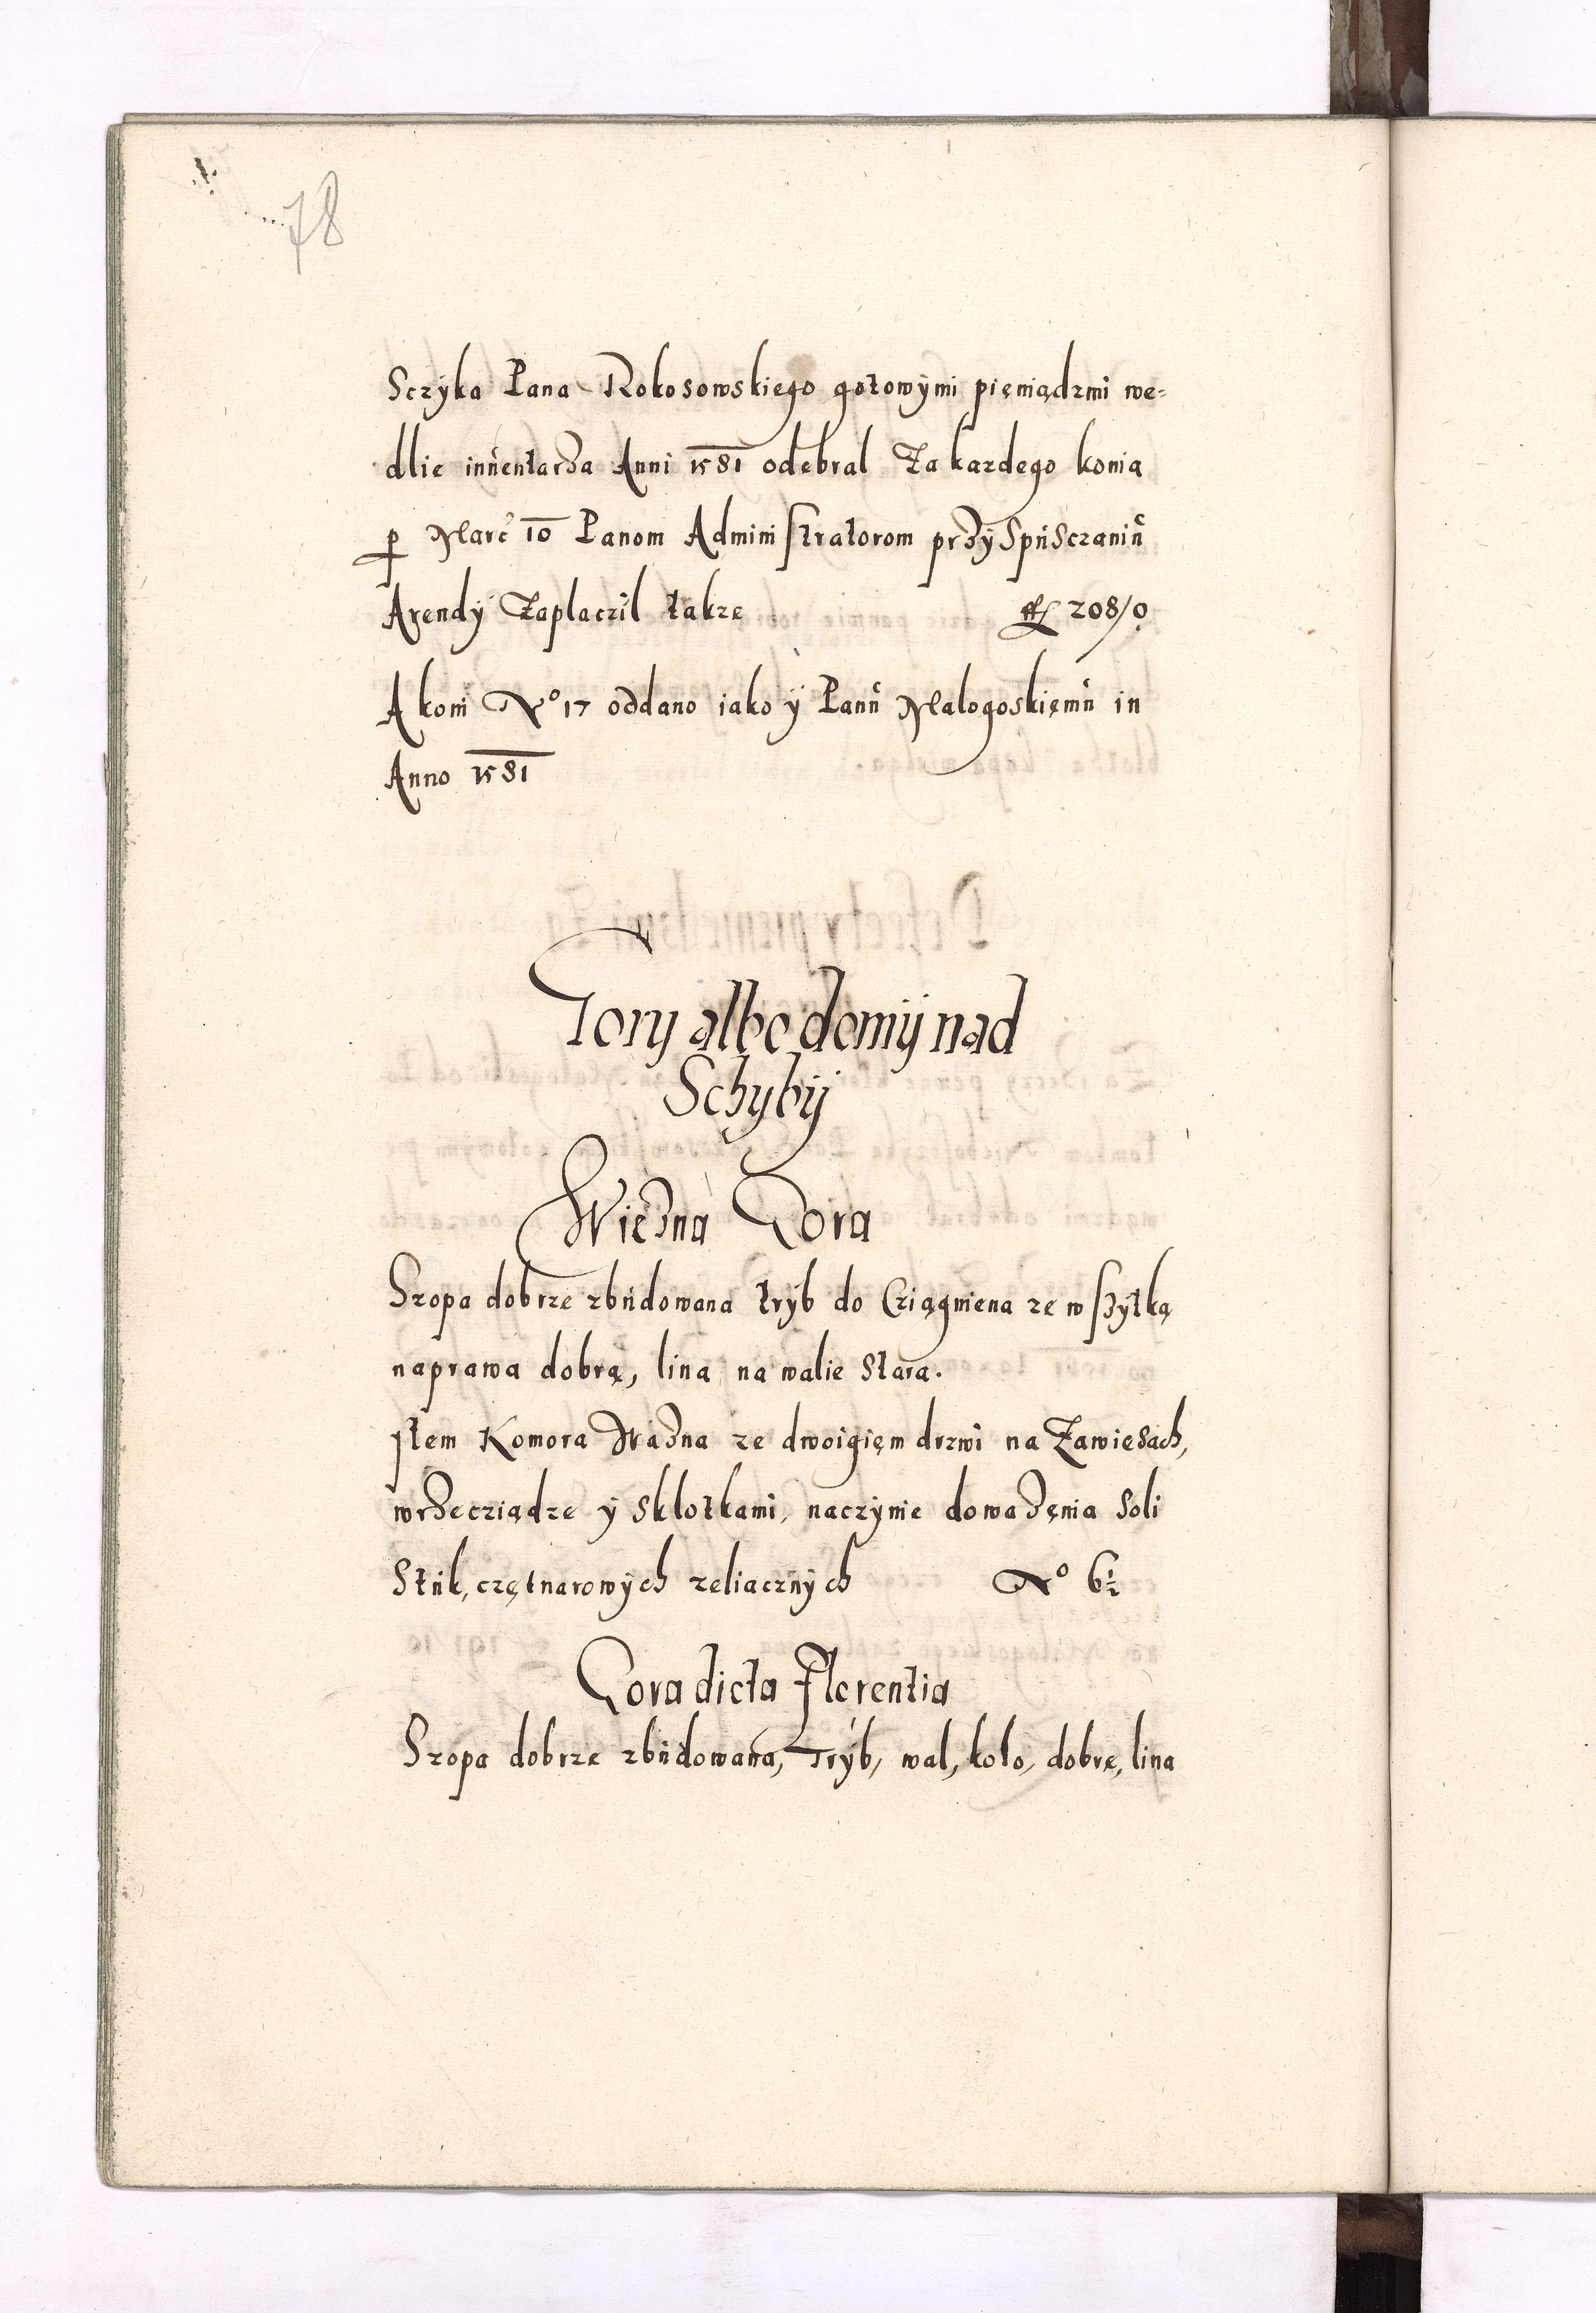 78
Sczyka Pana Rokosowskiego gotowymi pieniądzmi we-
dlie inuentarza Anni 1581 odebral Za kazdego konia
per Marc 10 Panom Administratorom przy Spusczaniu
Arendy Zaplaczil takze fl 208/0
A koni No 17 oddano iako y Panu Malogoskiemu in
Anno 1581
Gory albo domy nad
Schyby
Wiezna Gora
Szopa dobrze zbudowana tryb do Cziągniena ze wszytką
naprawa dobrą, lina na walie Stara.
Item Komora Wazna ze dwoigięm drzwi na Zawiesach,
wrzecziądze y Sklotkami, naczynie do wazęnia Soli
Stuk, czętnarowych zeliaznych No 6½
Gora dicta Florentia
Szopa dobrze zbudowana, Tryb, wal, kolo, dobre, lina